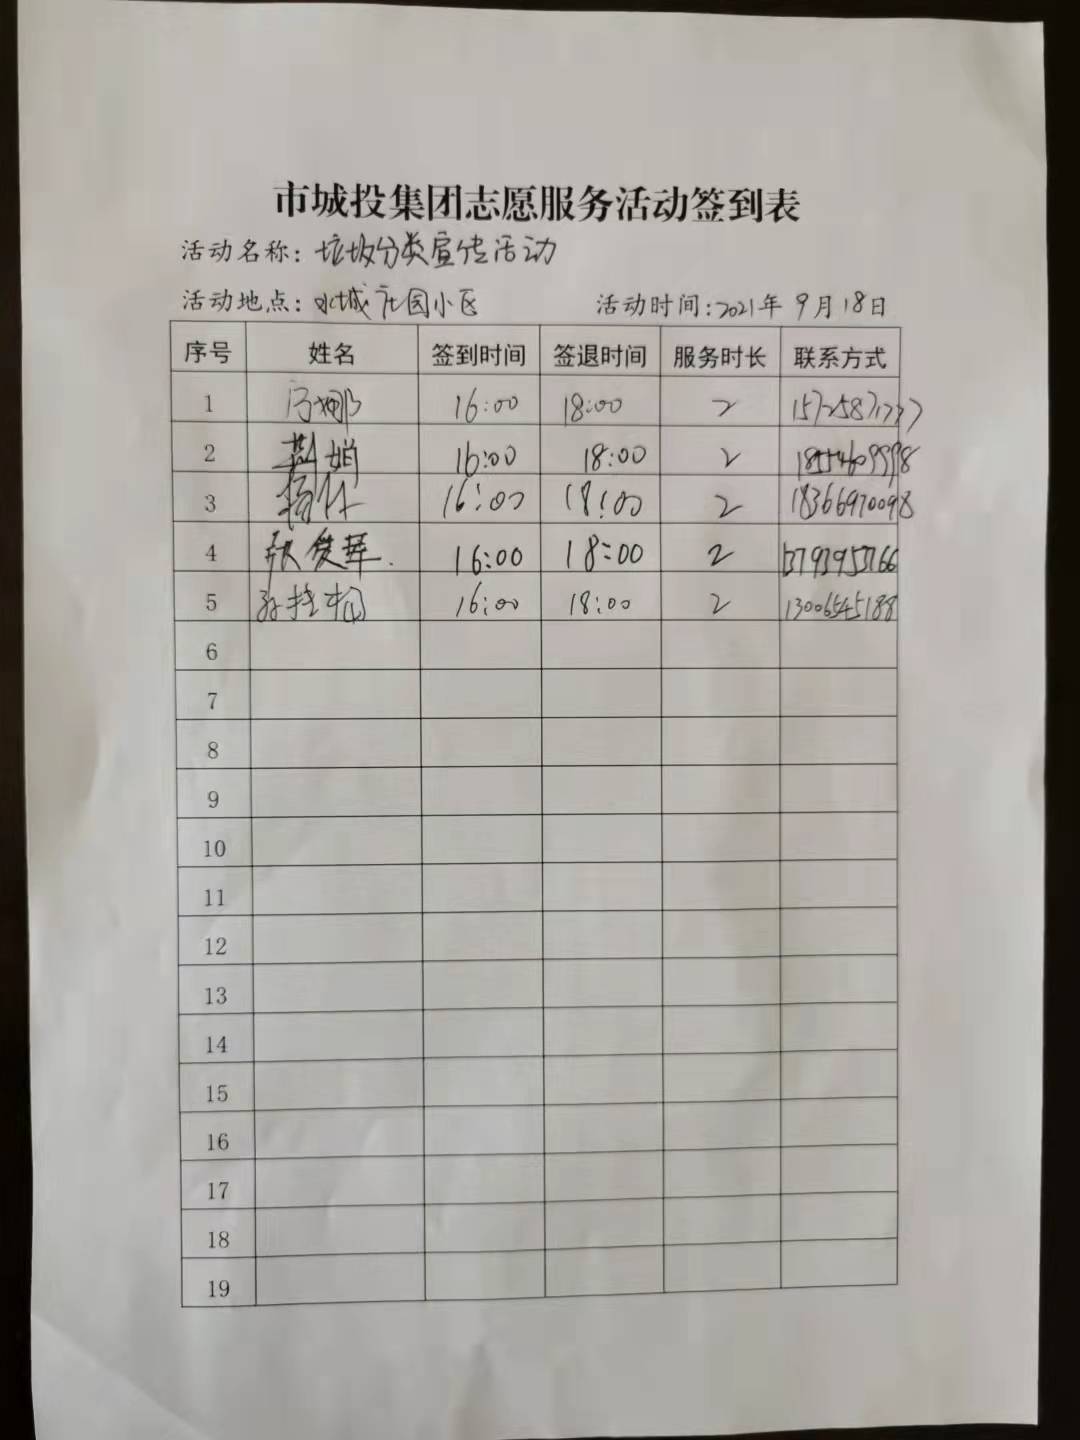 市城投集团志愿服务活动签到表
活动名称：垃圾分类宣传活动
活动地点：水城花园小区 活动时间：2021年 9月18日
序号 姓名 签到时间 签退时间 服务时长 联系方式
1 16:00 18:00 2
2 娟 16:00 18:00 2
3 杨 16:00 18:00 2 18366970098
4 张俊辉. 16:00 18:00 2
5 孙桂松 16:00 18:00 2 13006545188
6
7
8
9
10
11
12
13
14
15
16
17
18
19